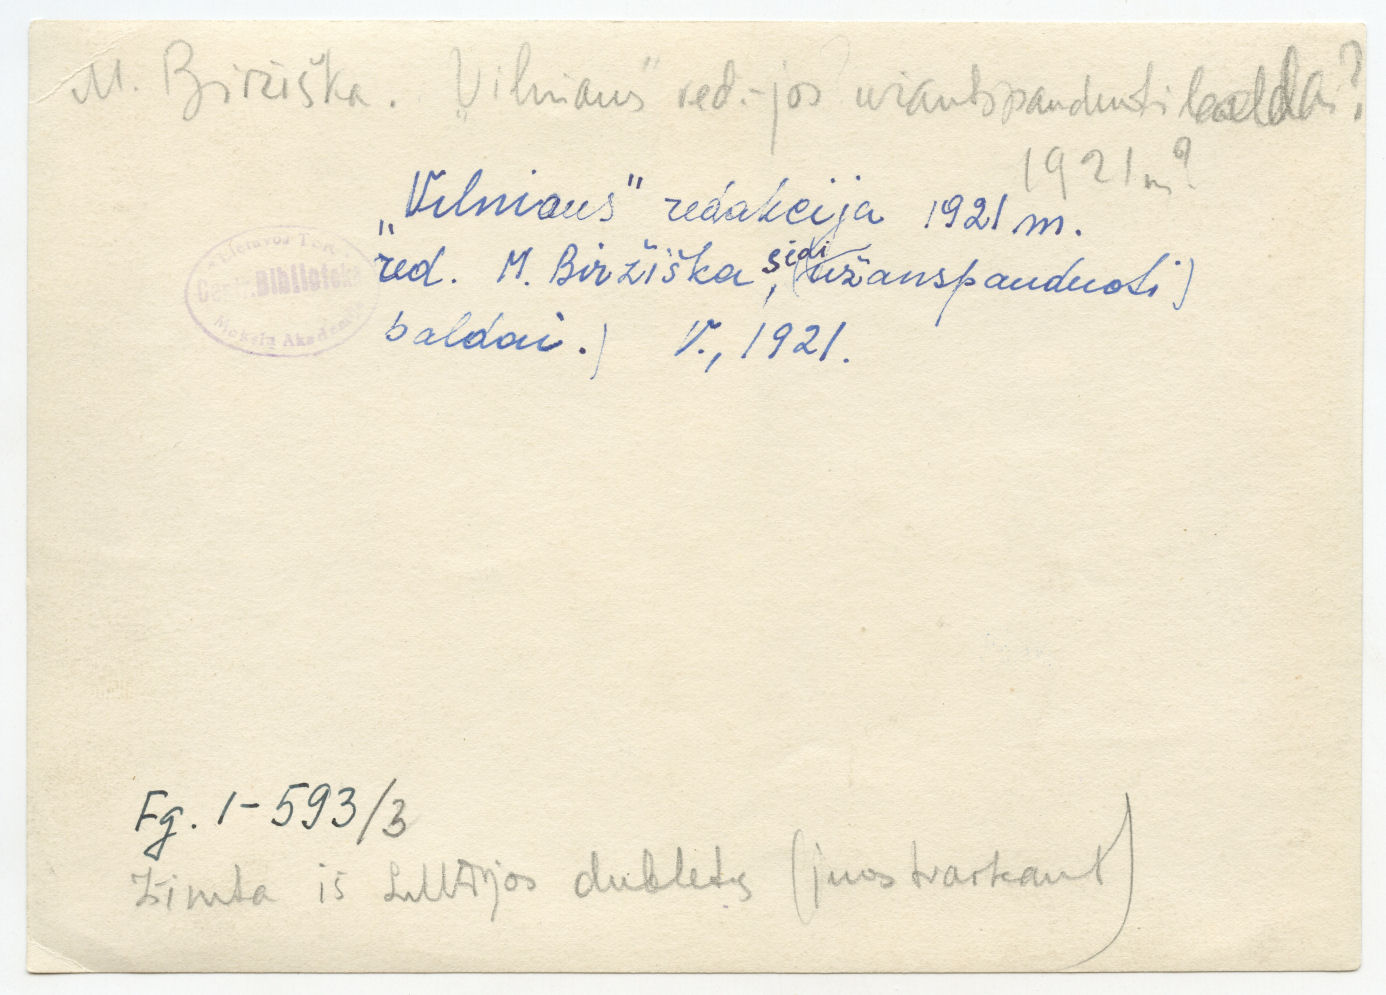 M. Biržiška. „Vilniaus" red.-jos užantspauduoti baldai?
1921 m?
„Vilniaus" redakcija 1921 m.
red. M. Biržiška, sėdi (užanspauduoti)
baldai.) V., 1921.
Lietavos TSR
Centr. Biblioteka
Mokslų Akademijos
Fg. 1-593/3
Išimta iš dubletų (juos tvarkant)